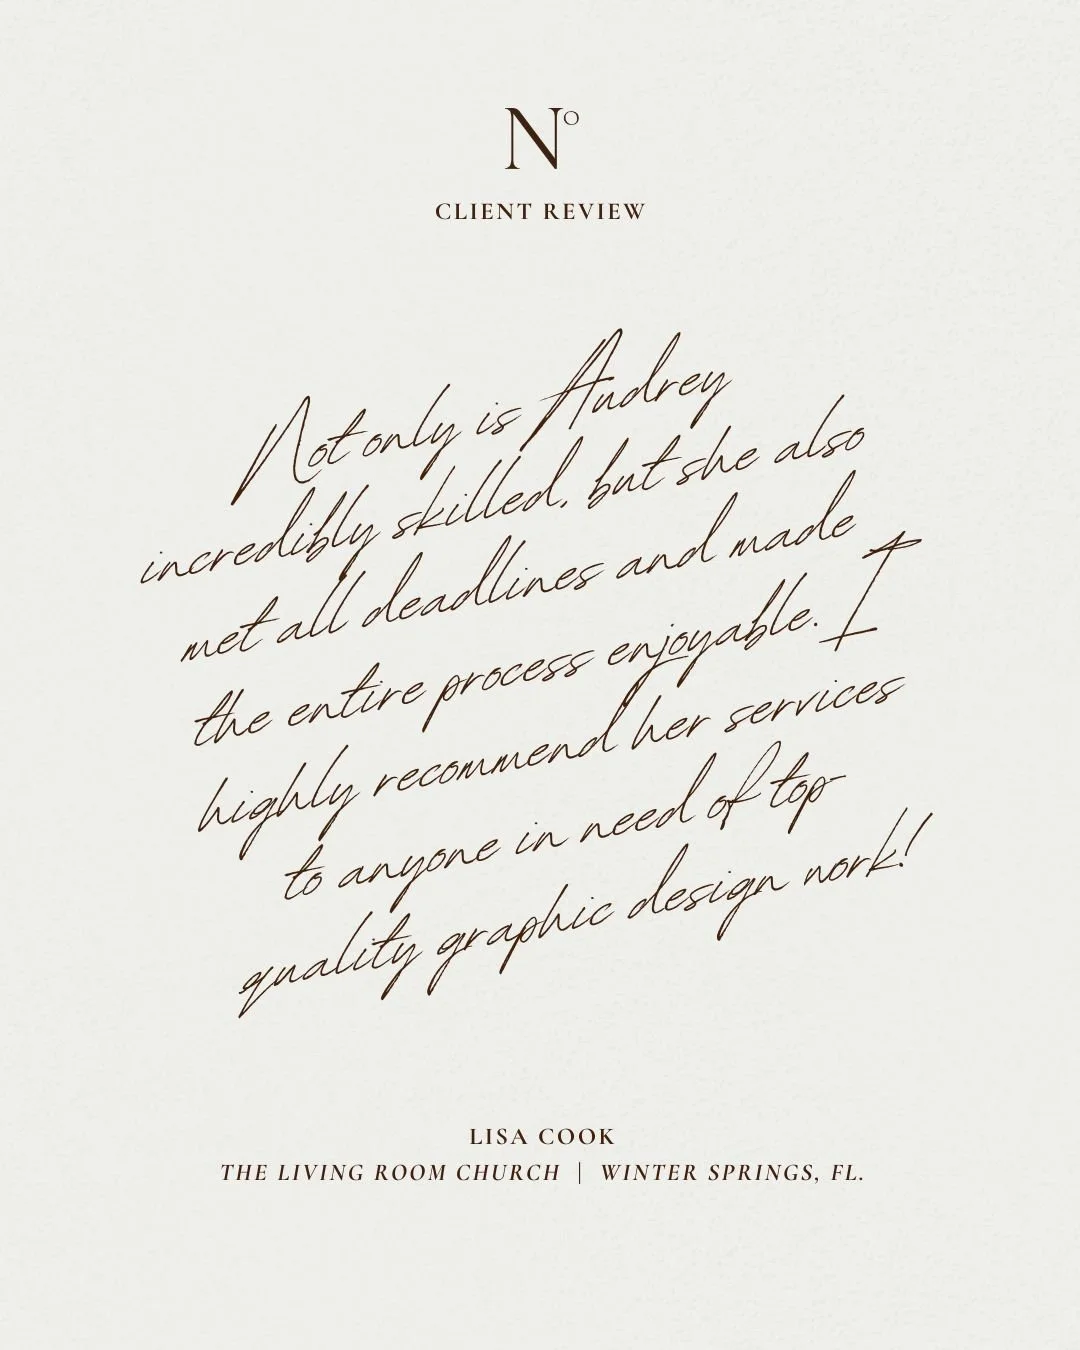 Nº
CLIENT REVIEW
Not only is Audrey
incredibly skilled, but she also
met all deadlines and made
the entire process enjoyable. I
highly recommend her services
to anyone in need of top-
quality graphic design work!
LISA COOK
THE LIVING ROOM CHURCH | WINTER SPRINGS, FL.